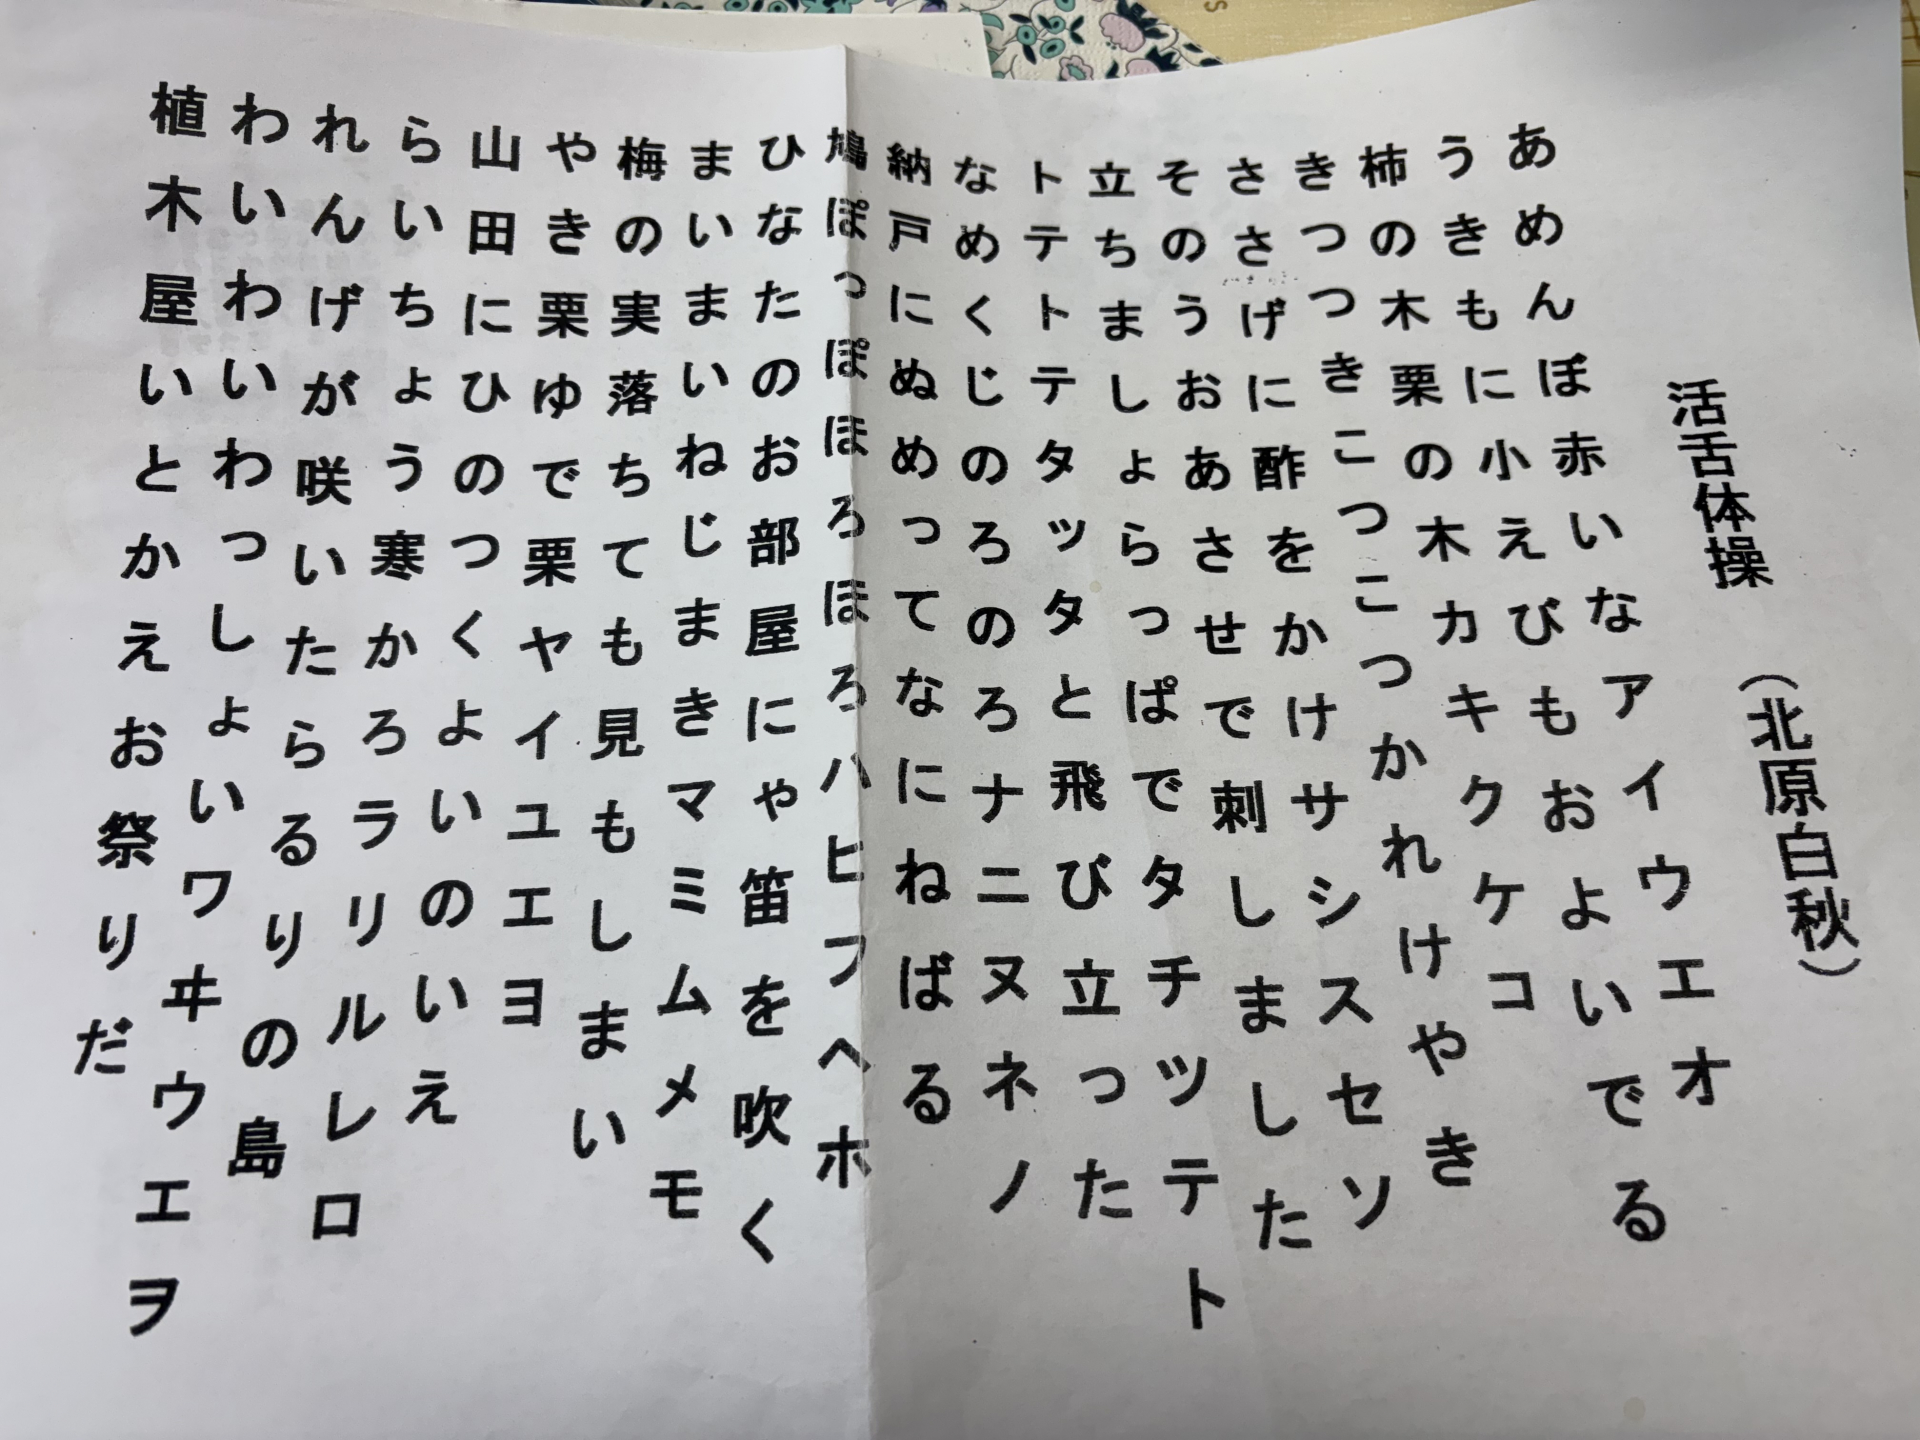 活舌体操　（北原白秋）
あめんぼ赤いなアイウエオ
うきもに小えびもおよいでる
柿の木栗の木カキクケコ
きつつきこつこつかれけやき
ささげに酢をかけサシスセソ
そのうおあさせで刺しました
立ちましょらっぱでタチツテト
トテトテタッタと飛び立った
なめくじのろのろナニヌネノ
納戸にぬめってなにねばる
鳩ぽっぽほろほろハヒフヘホ
ひなたのお部屋にゃ笛を吹く
まいまいねじまきマミムメモ
梅の実落ちても見もしまい
やき栗ゆで栗ヤイユエヨ
山田にひのつくよいのいえ
らいちょう寒かろラリルレロ
れんげが咲いたらるりの島
わいわいわっしょいワヰウエヲ
植木屋いとかえお祭りだ